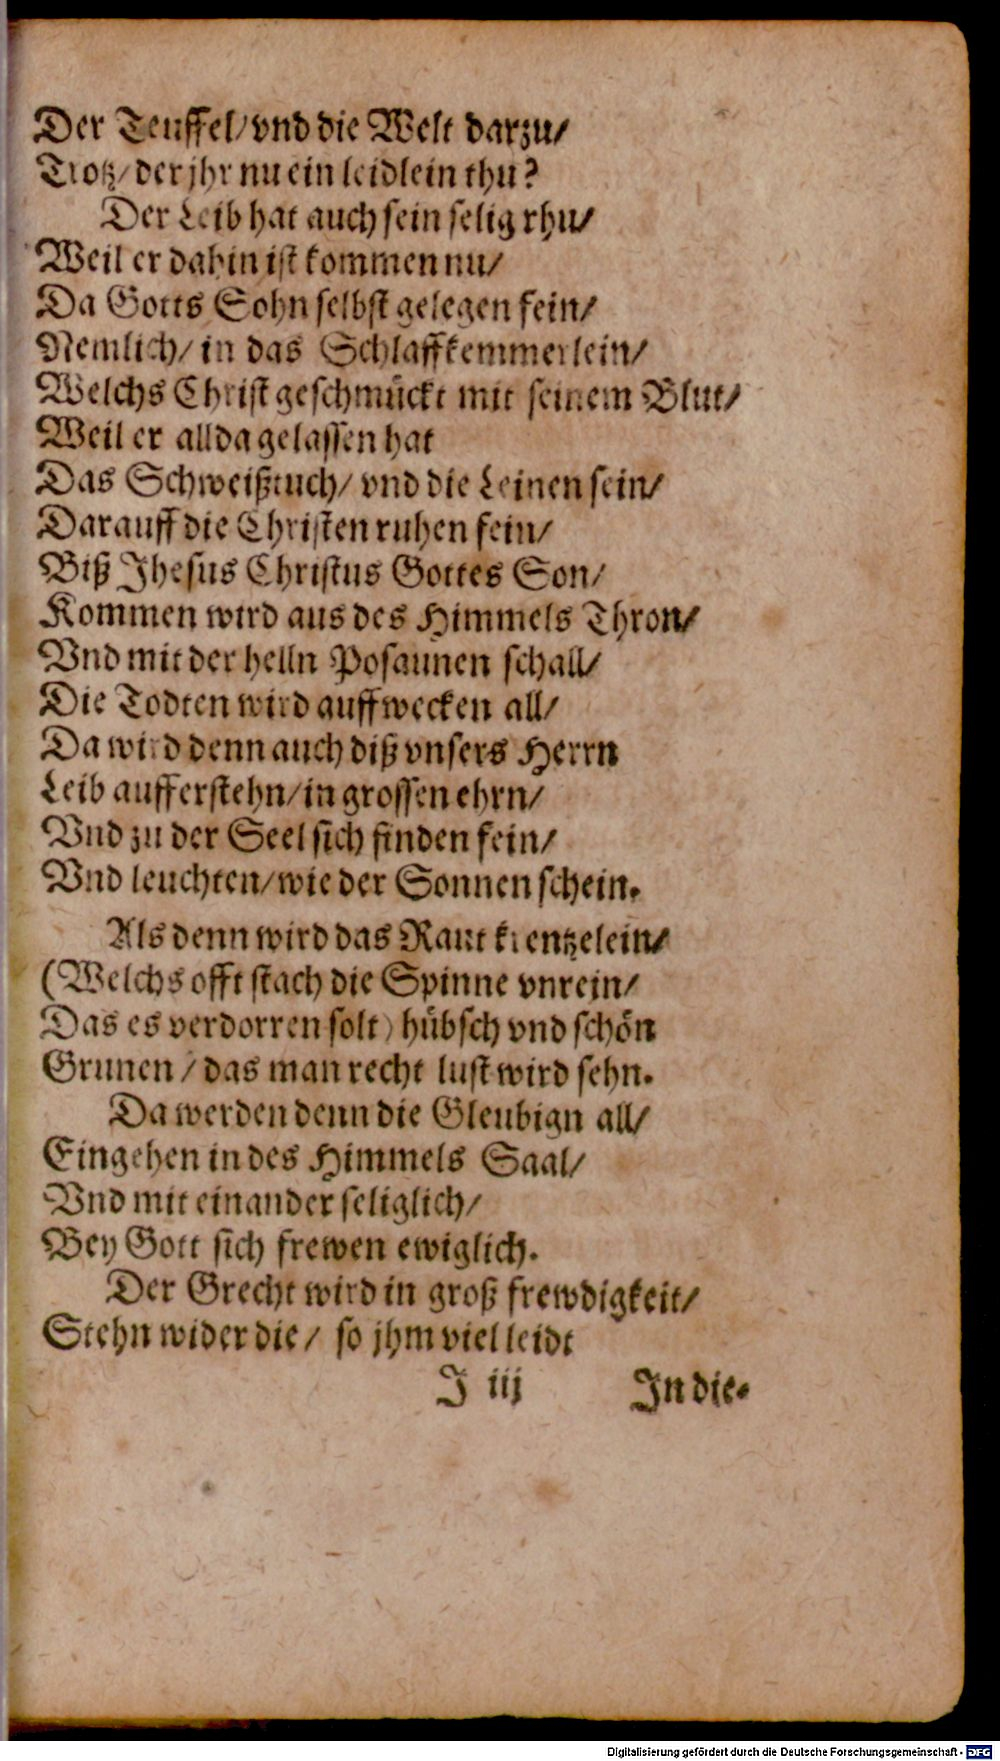 Der Teuffel/ vnd die Welt darzu/
Trotz/ der jhr nu ein leidlein thu?
Der Leib hat auch sein selig rhu/
Weil er dahin ist kommen nu/
Da Gotts Sohn selbst gelegen fein/
Nemlich/ in das Schlaffkemmerlein/
Welchs Christ geschmückt mit seinem Blut/
Weil er allda gelassen hat
Das Schweißtuch/ vnd die Leinen sein/
Darauff die Christen ruhen fein/
Biß Jhesus Christus Gottes Son/
Kommen wird aus des Himmels Thron/
Vnd mit der helln Posaunen schall/
Die Todten wird auffwecken all/
Da wird denn auch diß vnsers Herrn
Leib aufferstehn/ in grossen ehrn/
Vnd zu der Seel sich finden fein/
Vnd leuchten/ wie der Sonnen schein.
Als denn wird das Raut krentzelein/
(Welchs offt stach die Spinne vnrein/
Das es verdorren solt) hübsch vnd schön
Grunen/ das man recht lust wird sehn.
Da werden denn die Gleubign all/
Eingehen in des Himmels Saal/
Vnd mit einander seliglich/
Bey Gott sich frewen ewiglich.
Der Grecht wird in groß frewdigkeit/
Stehn wider die/ so jhm viel leidt
J iij In die-
Digitalisierung gefördert durch die Deutsche Forschungsgemeinschaft - DFG